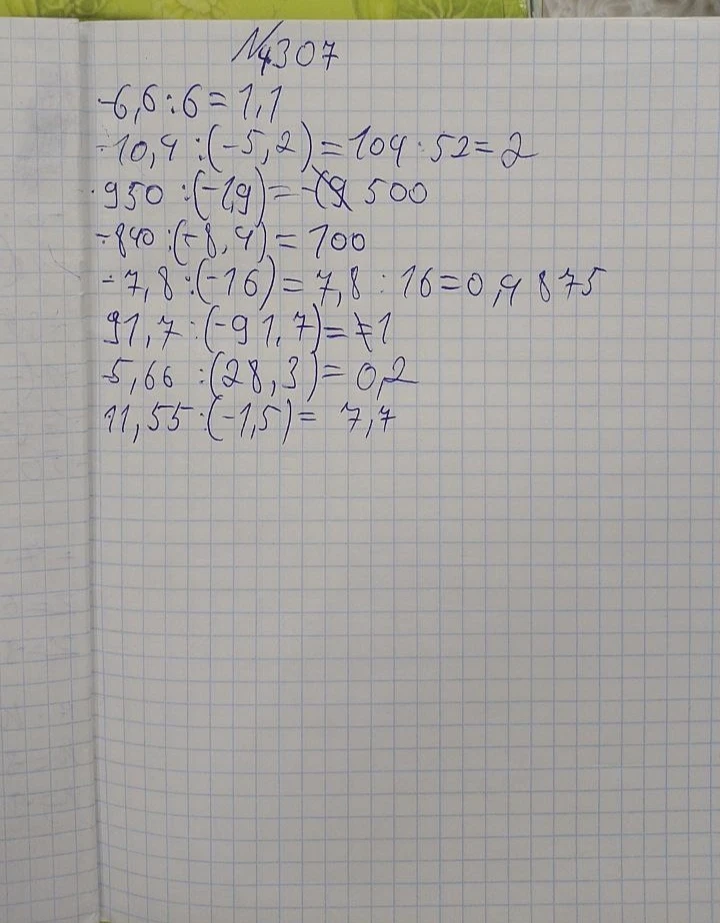 №4307
-6,6:6=1,1
-10,4:(-5,2)=104:52=2
-950:(-1,9)=500
-840:(-8,4)=100
-7,8:(-16)=7,8:16=0,4875
91,7:(-91,7)=-1
5,66:(28,3)=0,2
11,55:(-1,5)=7,7